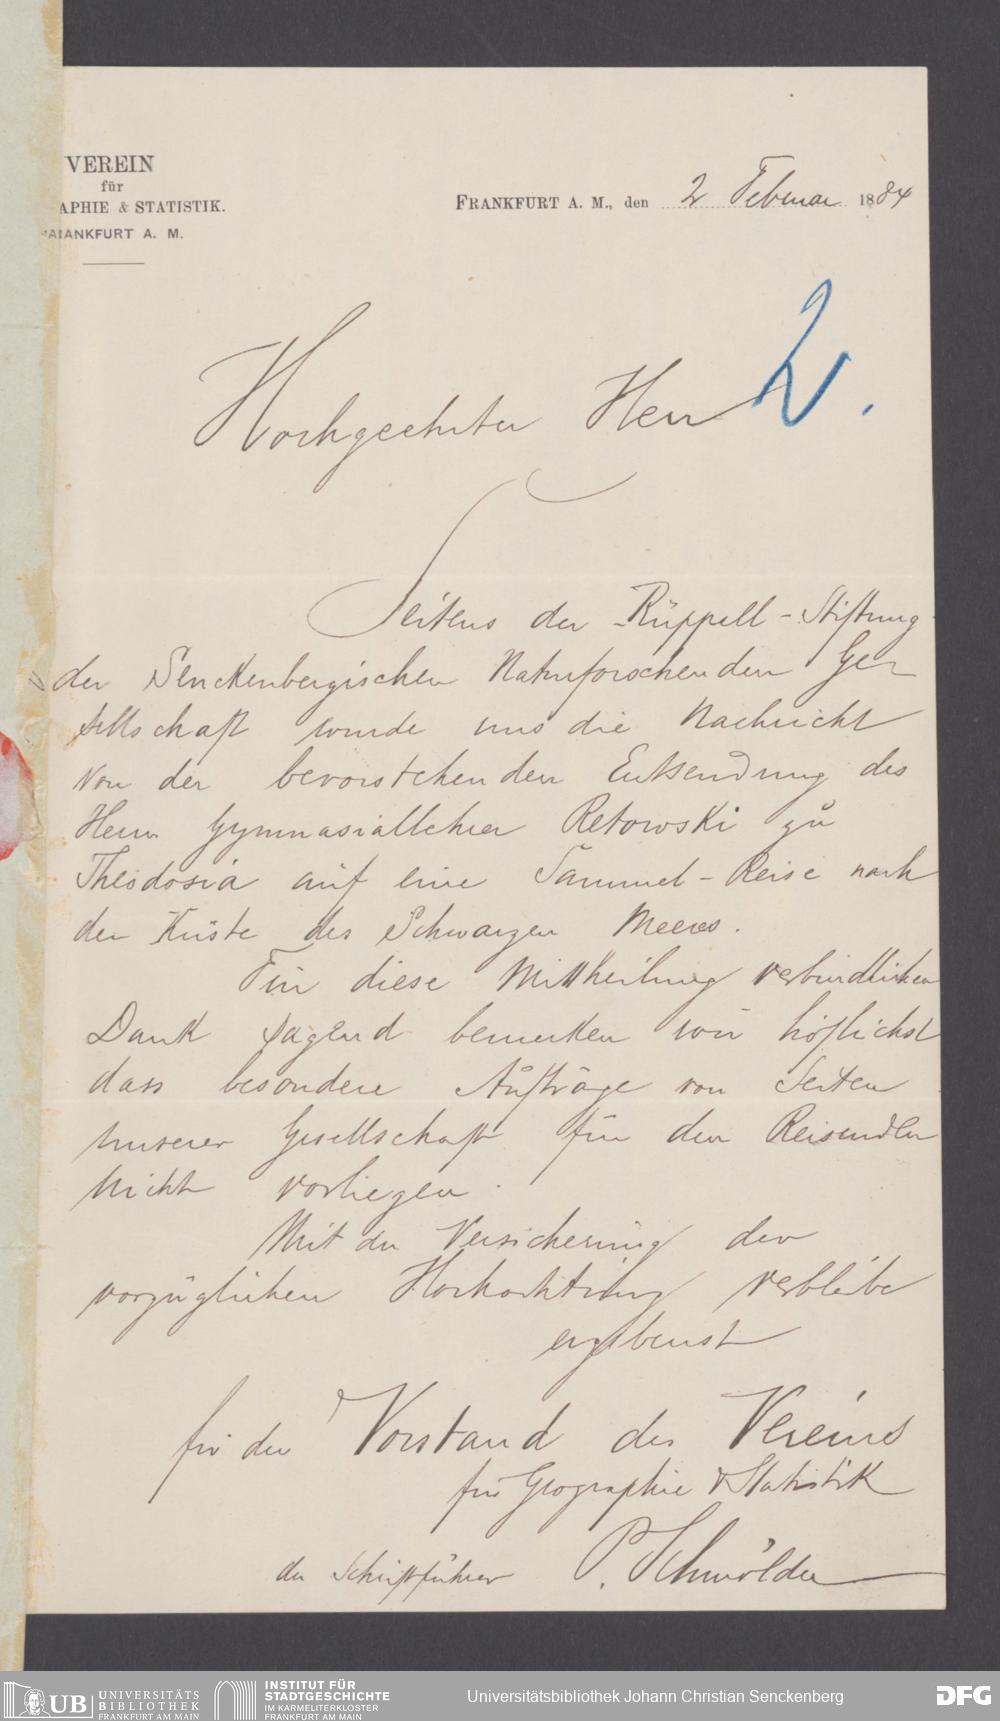 VEREIN
für
APHIE & STATISTIK.
RANKFURT A. M.
FRANKFURT A. M., den 2 Februar 1884
2.
Hochgeehrter Herr
Seitens der Rüppell-Stiftung
der Senckenbergischen Naturforschenden Ge-
sellschaft wurde uns die Nachricht
von der bevorstehenden Entsendung des
Herrn Gymnasiallehrer Retowski zu
Theodosia auf eine Sammel-Reise nach
der Küste des Schwarzen Meeres.
Für diese Mittheilung verbindlichen
Dank sagend bemerken wir höflichst
dass besondere Aufträge von Seiten
unserer Gesellschaft für den Reisenden
nicht vorliegen.
Mit der Versicherung der
vorzüglichen Hochachtung verbleibe
ergebenst
für den Vorstand des Vereins
für Geographie & Statistik
der Schriftführer P. Schmölder
UB UNIVERSITÄTS
BIBLIOTHEK
FRANKFURT AM MAIN
INSTITUT FÜR
STADTGESCHICHTE
IM KARMELITERKLOSTER
FRANKFURT AM MAIN
Universitätsbibliothek Johann Christian Senckenberg
DFG